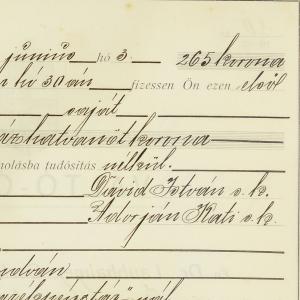 június hó 3. 265 korona
n hó 30 án fizessen Ön ezen első
saját
ázhatvanöt korona
nolásba tudósítás nélkül.
Dávid István s. k.
Adorján Kati s. k.
ndván